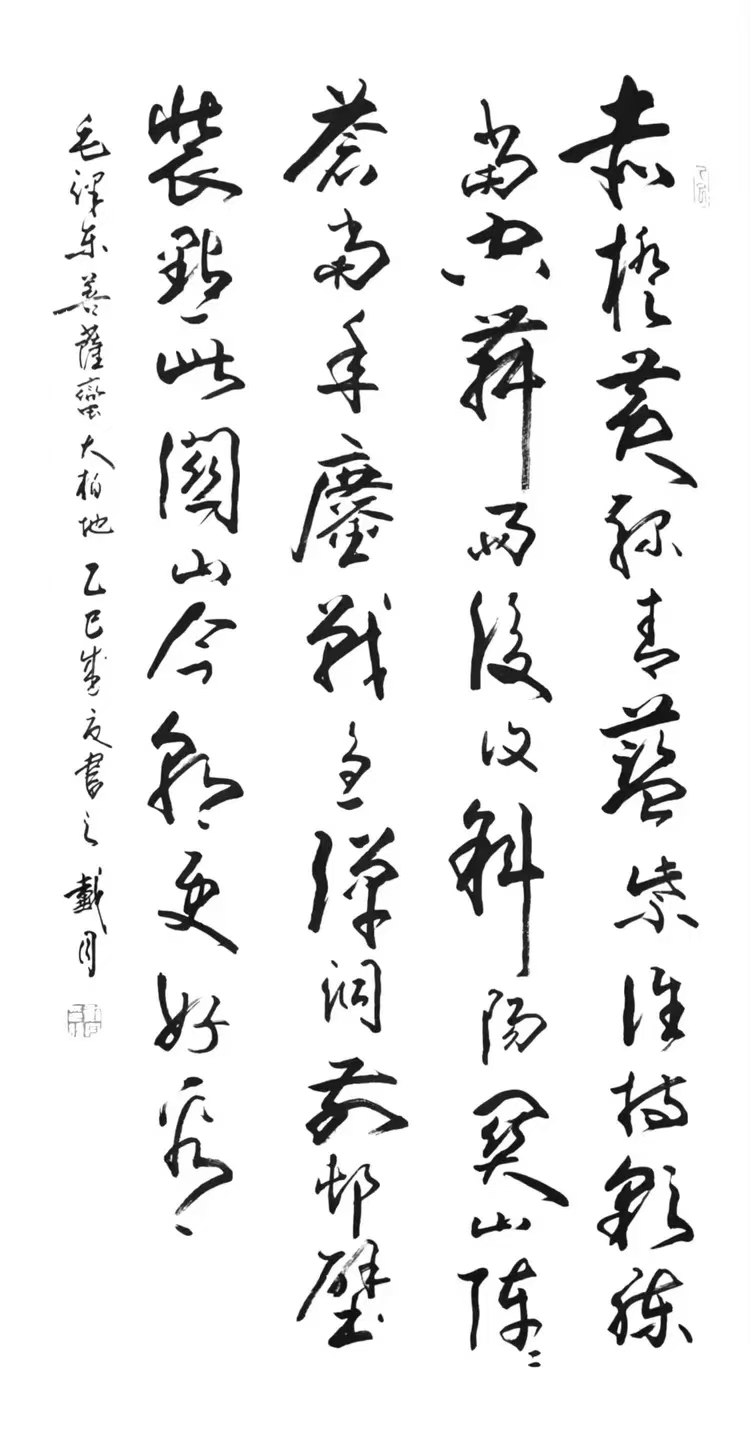 赤橙黄绿青蓝紫谁持彩练
当空舞雨后复斜阳关山阵〻
苍当年鏖战急弹洞前村壁
装点此关山今朝更好看
毛泽东菩萨蛮大柏地乙巳盛夏书之戴月